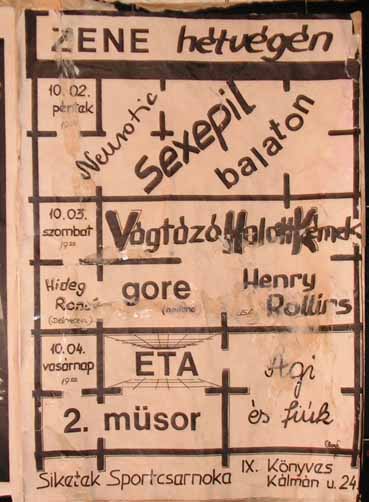 ZENE hétvégén
10.02.
péntek
Neurotic
sexepil
balaton
10.03.
szombat
Vágtázó Halott Kémek
Hideg
gore
Henry
Rollins
USA
10.04.
vasárnap
ETA
Ági
és fiúk
2. müsor
Siketek Sportcsarnoka
IX. Könyves
Kálmán u. 24